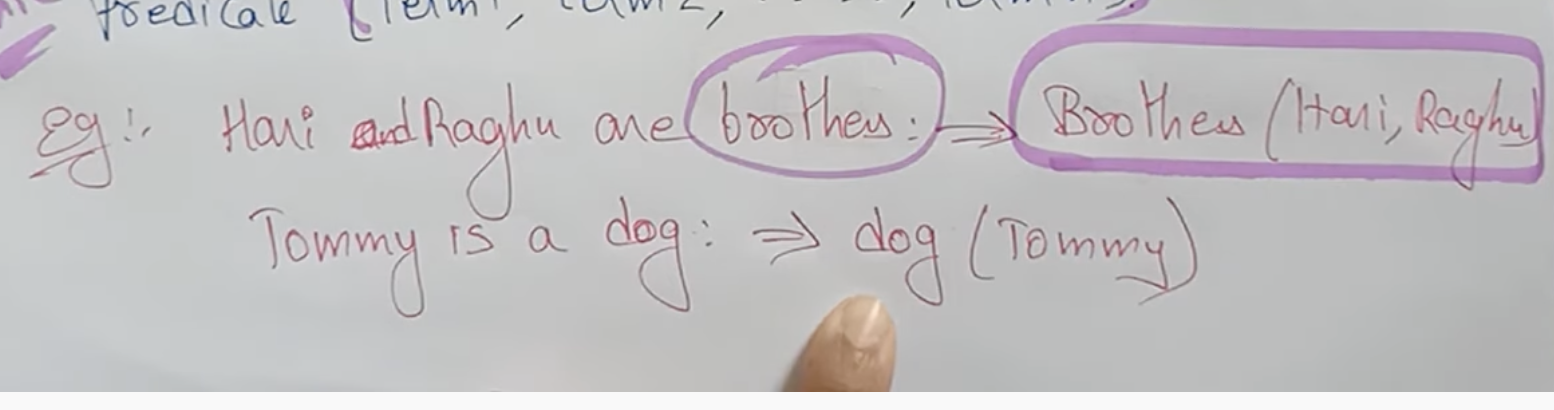 Predicate (Term1, term2,
Eg:. Hari and Raghu are brothers: ⇒ Brothers (Hari, Raghu)
Tommy is a dog: ⇒ dog (Tommy)